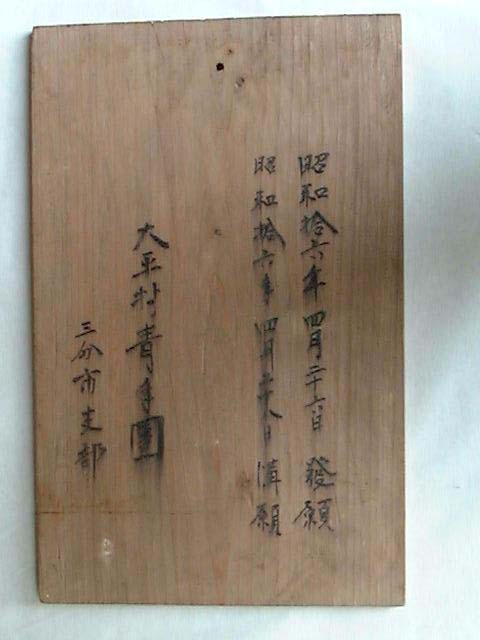 昭和拾六年四月二十六日 發願
昭和拾六年四月二十八日 満願
大平村青年團
三分市支部